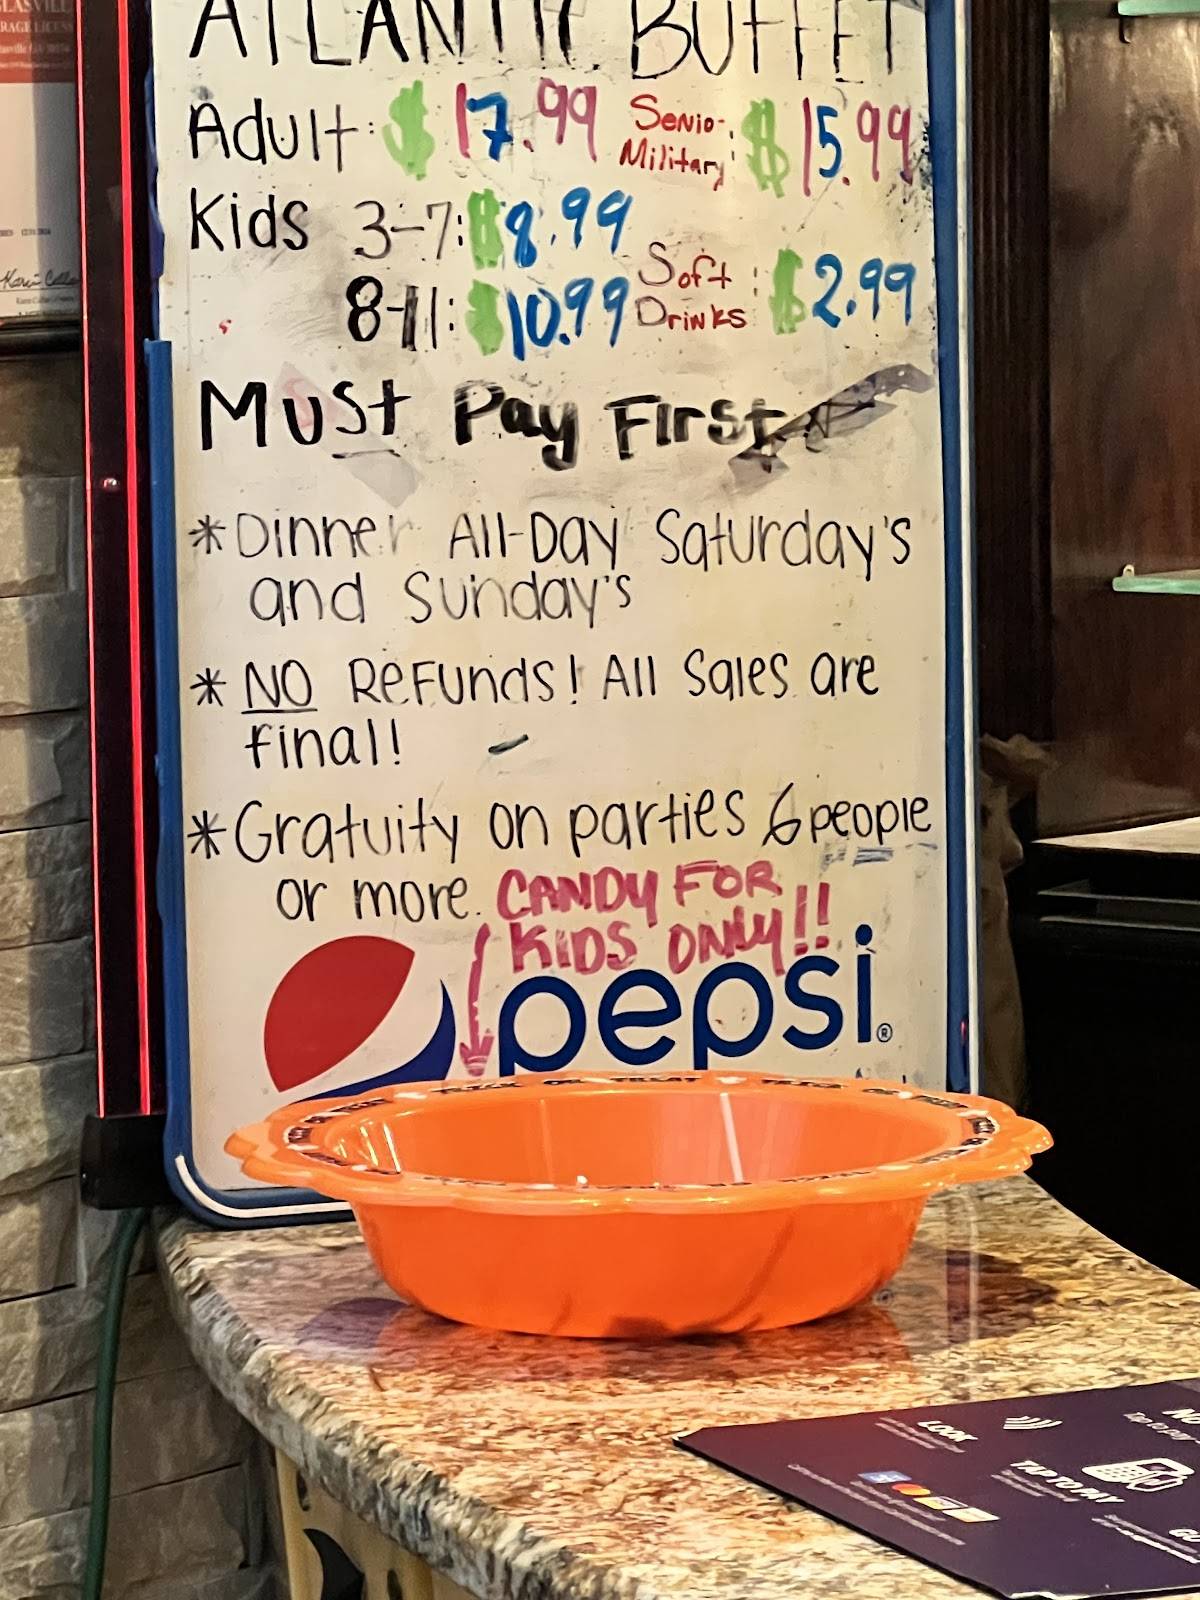 ATLANTIC BUFFET
Adult: $17.99 Senio-, Military: $15.99
Kids 3-7: $8.99
8-11: $10.99 Soft Drinks : $2.99
Must Pay First
*Dinner All-Day Saturday's
and Sunday's
* NO Refunds! All Sales are
final!
*Gratuity on parties 6 people
or more. CANDY FOR
KIDS ONLY!!
pepsi®
TRICK OR TREAT
LOOK
TAP TO PAY
Tap to pay